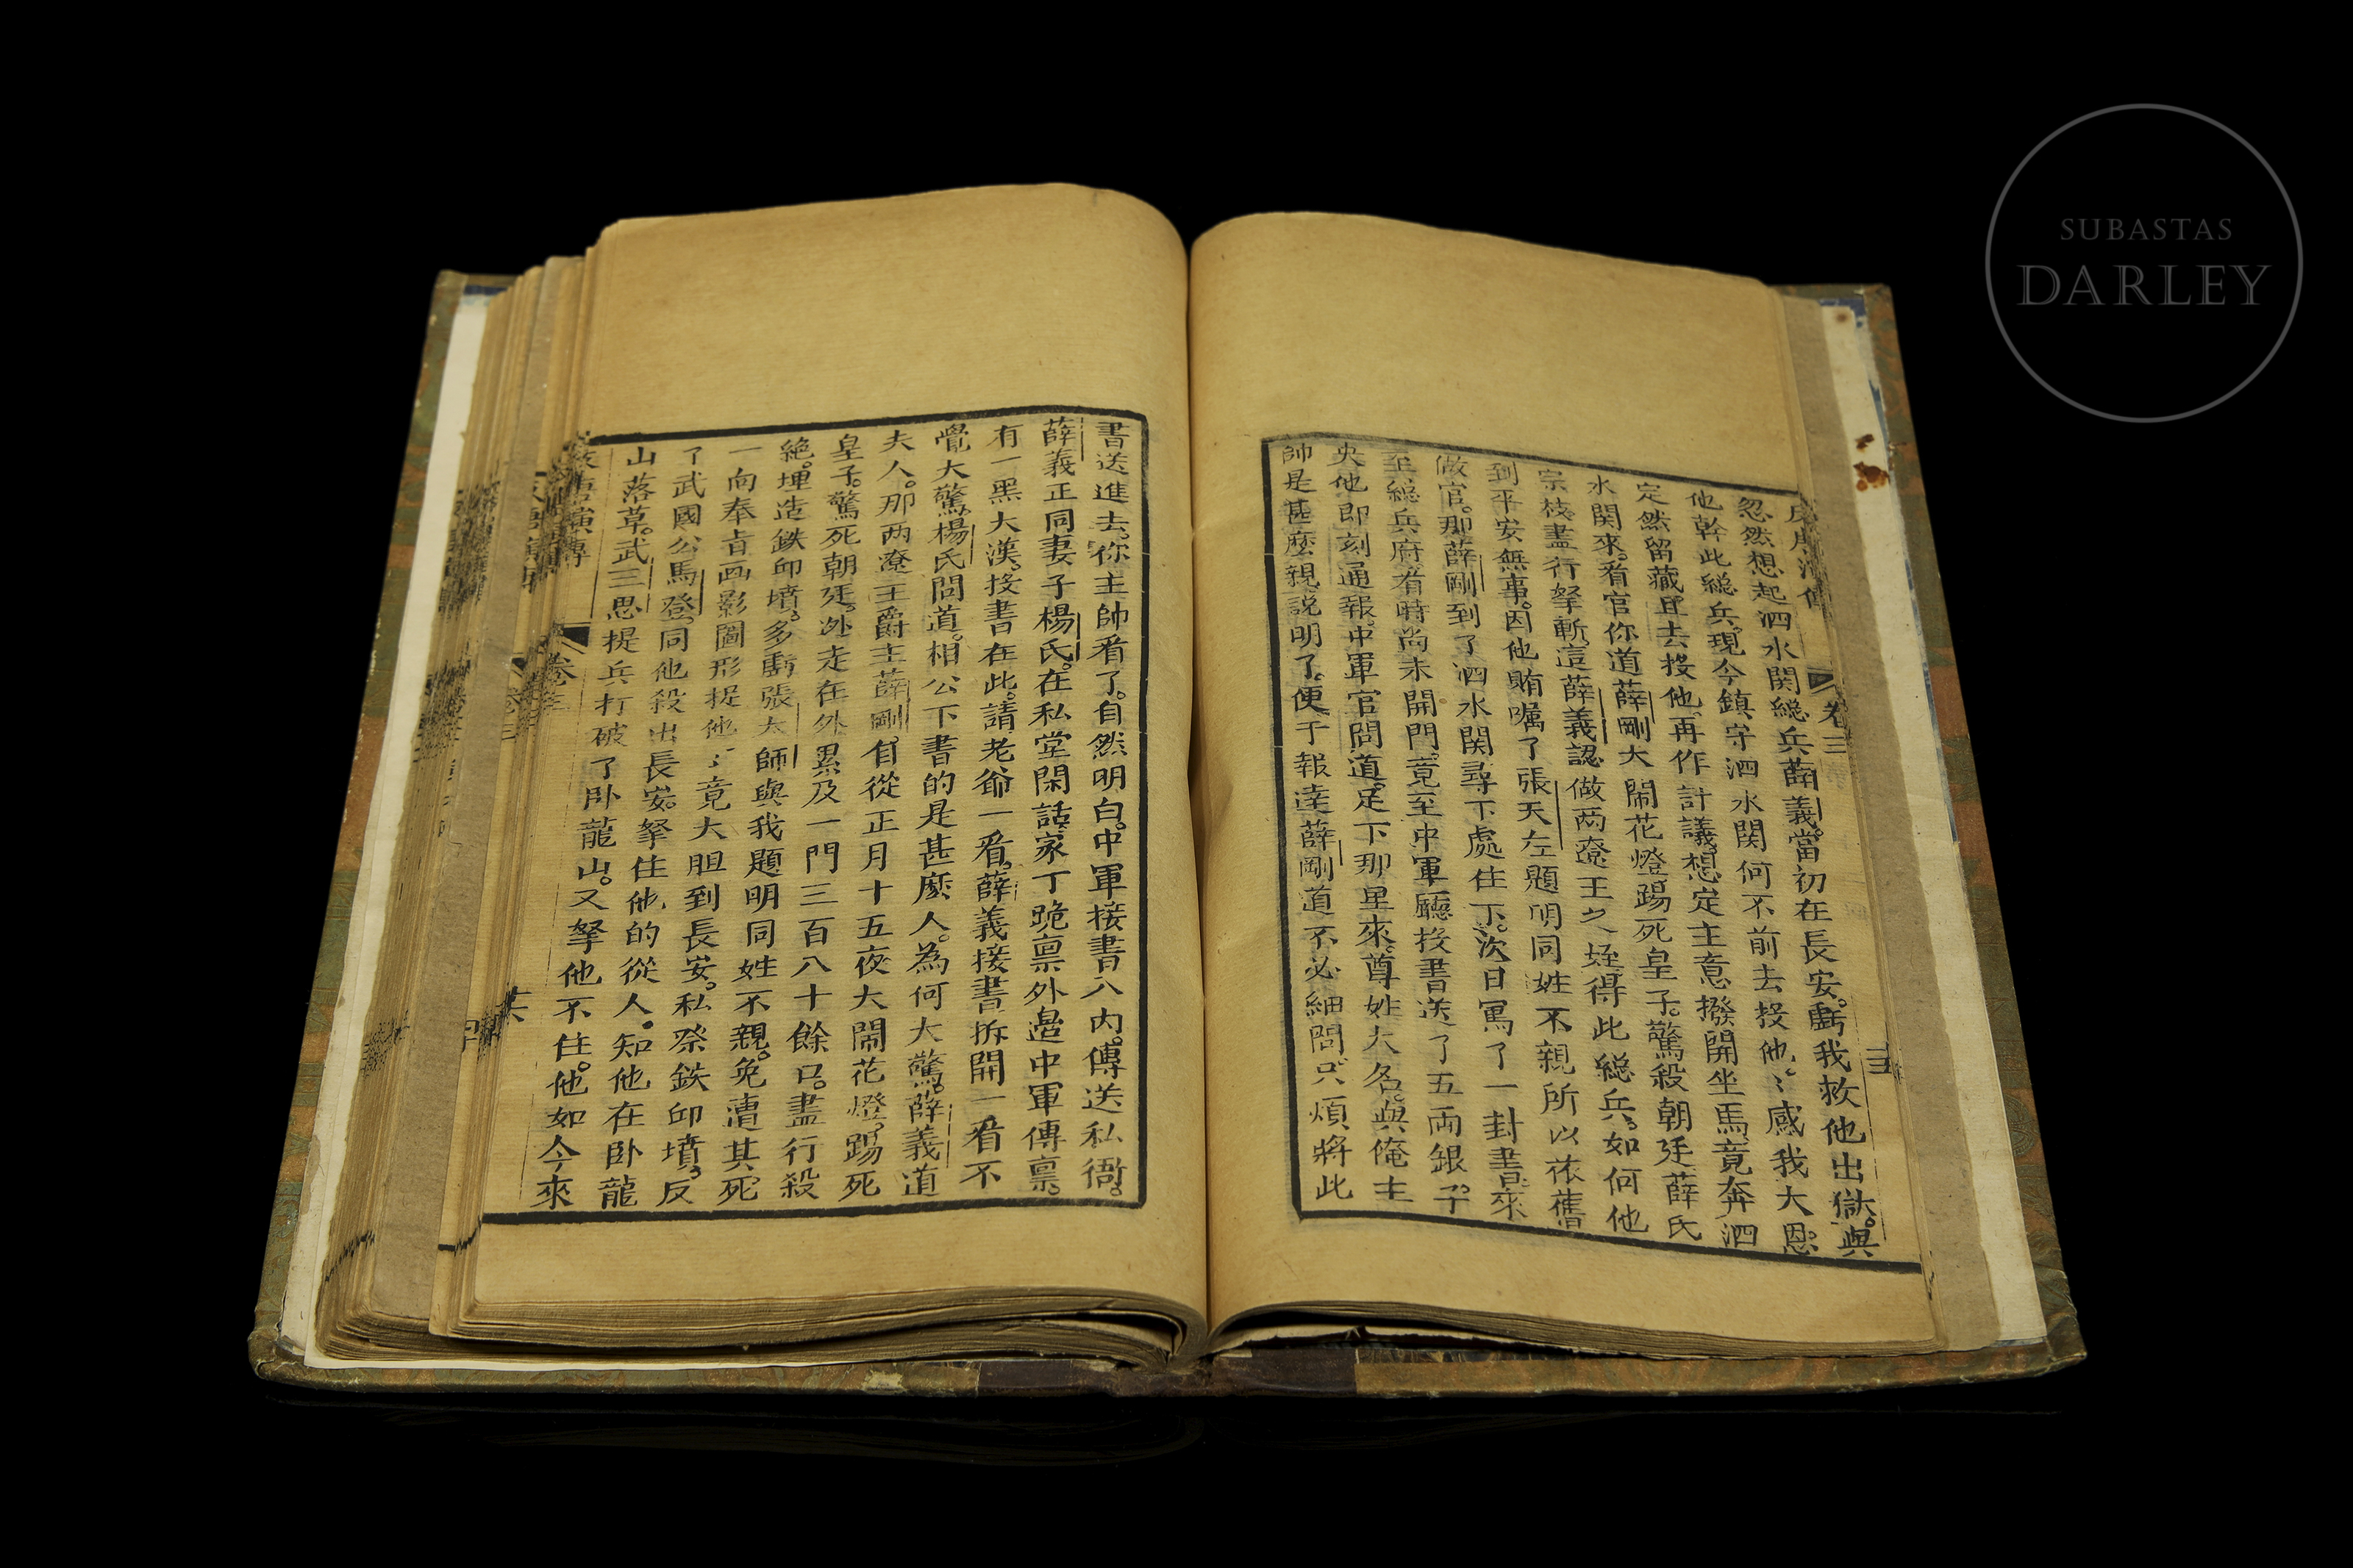 忽然想起泗水関総兵薛義當初在長安虧我救他出獄與
他幹此総兵現今鎮守泗水関何不前去投他〻感我大恩
定然留藏且去投他再作計議想定主意撥開坐馬竟奔泗
水関來看官你道薛剛大鬧花燈踢死皇子驚殺朝廷薛氏
宗枝盡行拏斬這薛義認做两遼王之姪得此総兵如何他
到平安無事因他賄囑了張天左題明同姓不親所以依舊
做官那薛剛到了泗水関尋下處住下次日寫了一封書來
至総兵府看時尚未開門竟至中軍廳投書送了五両銀子
央他即刻通報中軍官問道足下那里來尊姓大名與俺主
帥是甚麼親説明了便于報逹薛剛道不必細問只煩將此
書送進去你主帥看了自然明白中軍接書入内傳送私衙
薛義正同妻子楊氏在私堂閑話家丁跪禀外邊中軍傳禀
有一黑大漢投書在此請老爺一看薛義接書拆開一看不
覺大驚楊氏問道相公下書的是甚麼人為何大驚薛義道
夫人那两遼王爵主薛剛自從正月十五夜大鬧花燈踢死
皇子驚死朝廷逃走在外累及一門三百八十餘口盡行殺
絶埋造鉄邱墳多虧張太師與我題明同姓不親免遭其死
一向奉旨画影圖形捉他〻竟大胆到長安私祭鉄邱墳反
了武國公馬登同他殺出長安拏住他的從人知他在卧龍
山落草武三思提兵打破了卧龍山又拏他不住他如今來
唐演傳
卷三
SUBASTAS
DARLEY